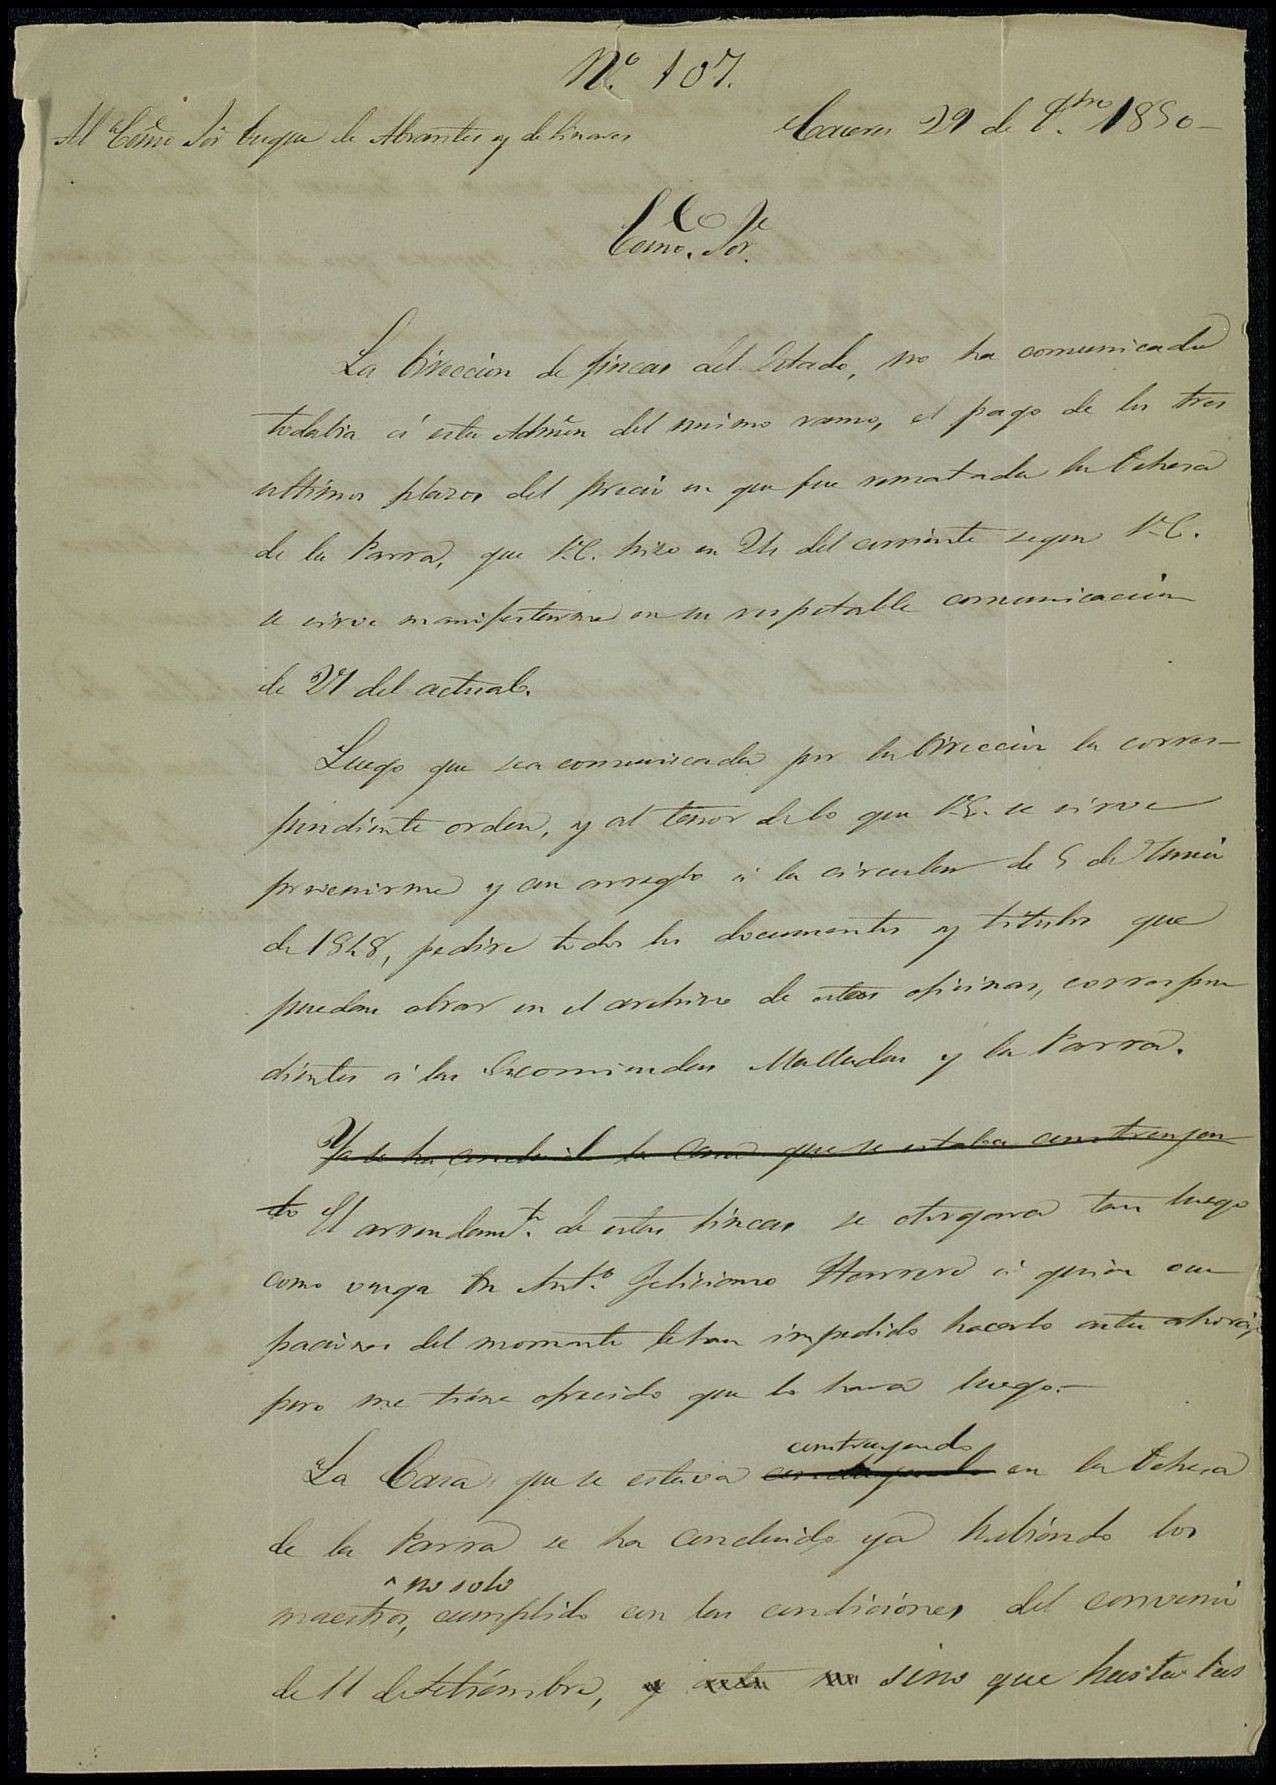 N.º 107.
Al Ecmo Sor Duque de Abrantes y de Linares
Caceres 29 de 1850
Ecmo. Sor.
La Direccion de fincas del Estado, no ha comunicado
todabia á esta Admón del mismo ramo, el pago de los tres
ultimos plazos del precio en que fue rematada la Dehesa
de la Parra, que V.E. hizo en 24 del corriente segun V.E.
se sirve manifestarme en su respetable comunicacion
de 27 del actual.
Luego que sea comunicada por la Direccion la corres-
pondiente orden, y al tenor de lo que V.E. se sirve
prevenirme y con arreglo á la circular de 5 de Junio
de 1848, pedire todos los documentos y titulos que
puedan obrar en el archivo de estas oficinas, correspon
dientes á las Encomiendas Malladas y la Parra.
Ya se ha concluido la casa que se estaba construyen
do El arrendamto. de estas fincas se otorgara tan luego
como venga Dn Anto. Feliciano Herrero á quien ocu
paciones del momento le han impedido hacerlo antes ahora,
pero me tiene ofrecido que lo hara luego.-
construyendo
La Casa que se estava en la Dehesa
de la Parra se ha concluido ya habiéndo los
^ no solo
maestros, cumplido con las condiciones del convenio
de 11 de Setiémbre, y sino que hasta las